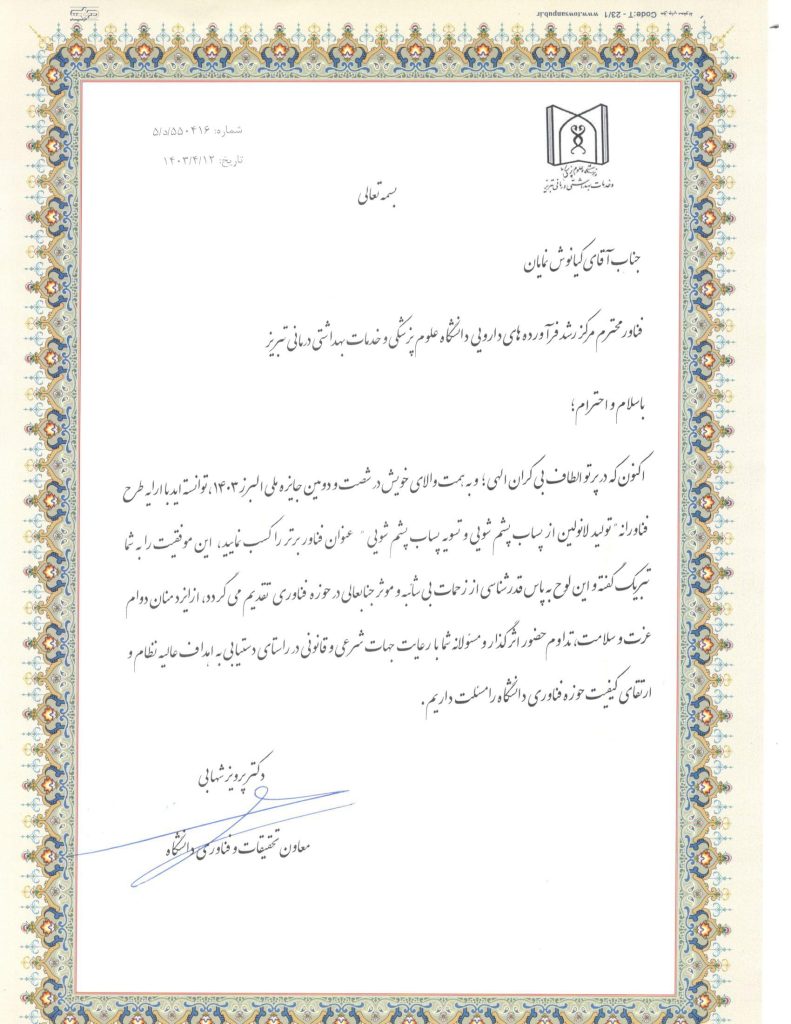 Code:T - 23/1 www.towsanpub.ir
دانشگاه علوم پزشکی
و خدمات بهداشتی درمانی تبریز
شماره: ۵/د/۵۵۰۴۱۶
تاریخ: ۱۴۰۳/۴/۱۲
بسمه تعالی
جناب آقای کیانوش نمایان
فناور محترم مرکز رشد فرآورده های دارویی دانشگاه علوم پزشکی و خدمات بهداشتی درمانی تبریز
باسلام و احترام؛
اکنون که در پرتو الطاف بی کران الهی؛ و به همت والای خویش در شصت و دومین جایزه ملی البرز ۱۴۰۳، توانسته اید با ارایه طرح
فناورانه "تولید لانولین از پساب پشم شویی و تسویه پساب پشم شویی " عنوان فناور برتر را کسب نمایید، این موفقیت را به شما
تبریک گفته و این لوح به پاس قدرشناسی از زحمات بی شائبه و موثر جنابعالی در حوزه فناوری تقدیم می گردد، از ایزد منان دوام
عزت و سلامت، تداوم حضور اثرگذار و مسئولانه شما با رعایت جهات شرعی و قانونی در راستای دستیابی به اهداف عالیه نظام و
ارتقای کیفیت حوزه فناوری دانشگاه را مسئلت داریم.
دکتر پرویز شهابی
معاون تحقیقات و فناوری دانشگاه